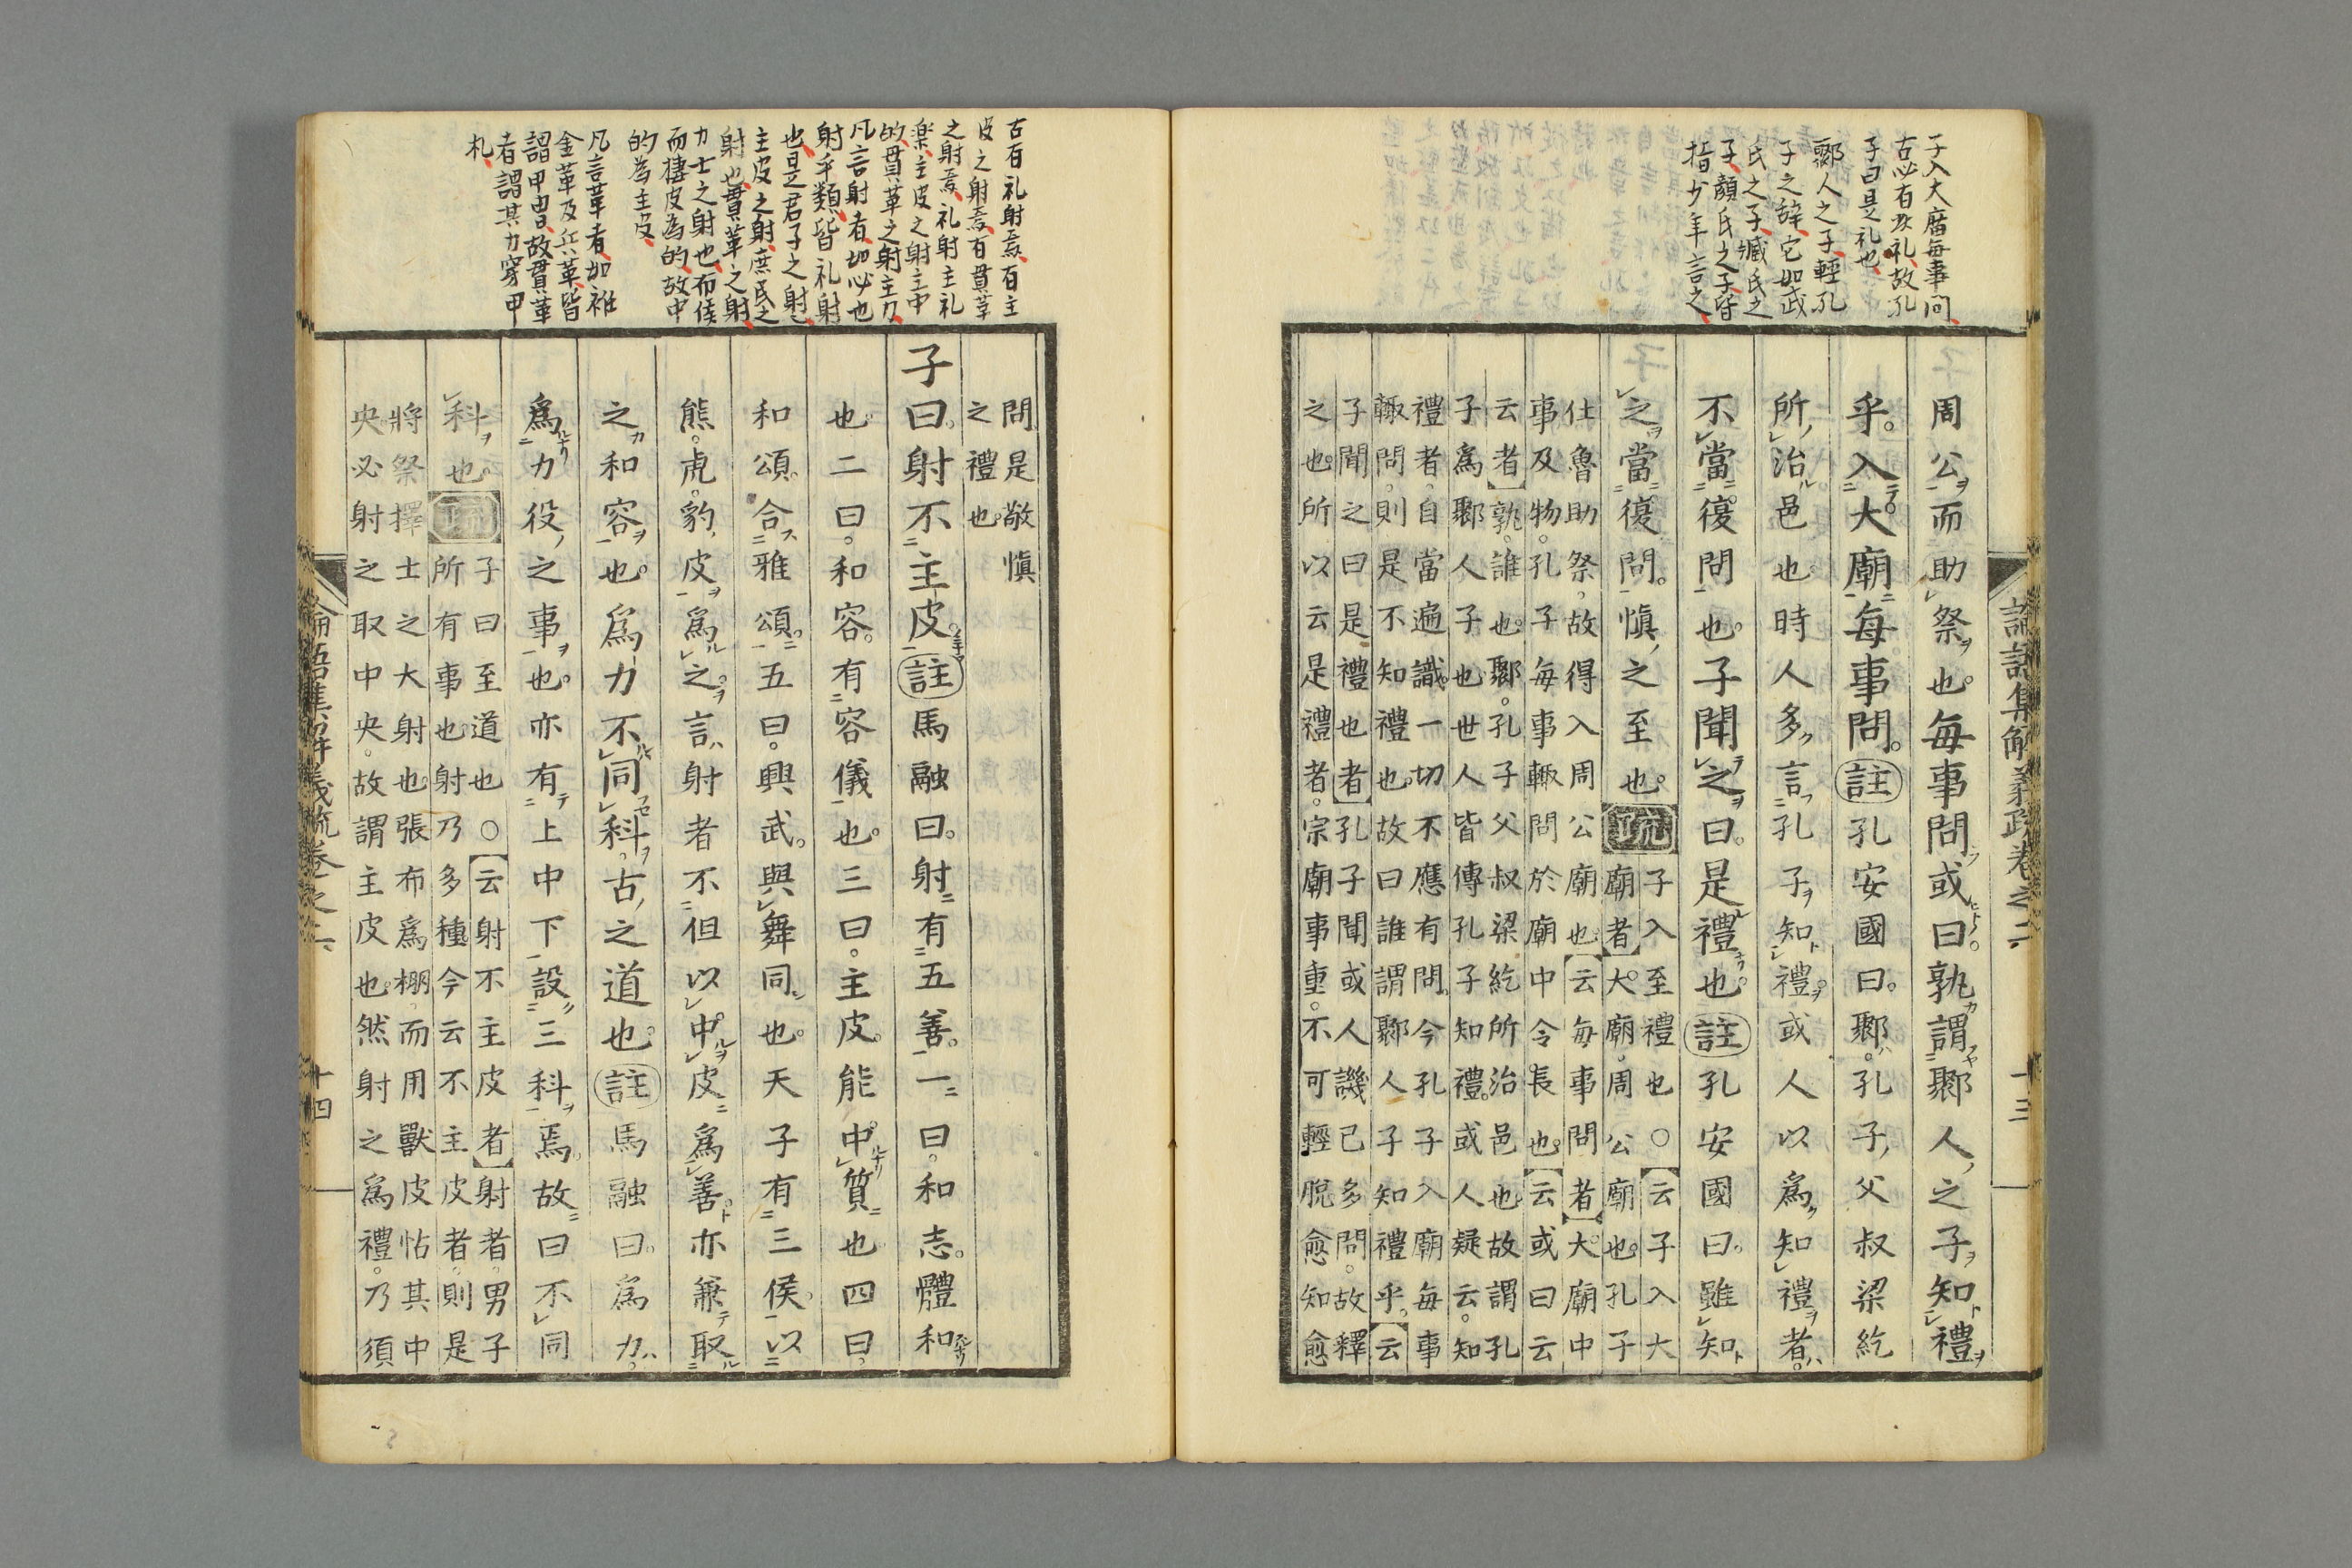 子入大庿毎事問
古必有攷礼故孔
子曰是礼也
鄹人之子輕孔
子之辞它如武
氏之子臧氏之
子顔氏之子皆
指少年言之
論語集解義疏卷之二
十三
周公而助祭也毎事問或曰孰謂鄹人之子知禮
乎入大廟毎事問註孔安國曰鄹孔子父叔梁紇
所治邑也時人多言孔子知禮或人以爲知禮者
不當復問也子聞之曰是禮也註孔安國曰雖知
之當復問愼之至也疏
子入至禮也○云子入大
廟者大廟周公廟也孔子
仕魯助祭故得入周公廟也云毎事問者大廟中
事及物孔子毎事輙問於廟中令長也云或曰云
云者孰誰也鄹孔子父叔梁紇所治邑也故謂孔
子爲鄹人子也世人皆傳孔子知禮或人疑云知
禮者自當遍識一切不應有問今孔子入廟毎事
輙問則是不知禮也故曰誰謂鄹人子知禮乎云
子聞之曰是禮也者孔子聞或人譏己多問故釋
之也所以云是禮者宗廟事重不可輕脫愈知愈
古有礼射焉有主
皮之射焉有貫革
之射焉礼射主礼
楽主皮之射主中
的貫革之射主力
凡言射者如必也
射乎類皆礼射
也是君子之射
主皮之射庶民之
射也貫革之射
力士之射也布侯
而棲皮為的故中
的為主皮
凡言革者如袵
金革及兵革皆
謂甲冑故貫革
者謂其力穿甲
札
問是敬愼
之禮也
子曰射不主皮註馬融曰射有五善一曰和志體和
也二曰和容有容儀也三曰主皮能中質也四曰
和頌合雅頌五曰興武與舞同也天子有三侯以
熊虎豹皮爲之言射者不但以中皮爲善亦兼取
之和容也爲力不同科古之道也註馬融曰爲力
爲力役之事也亦有上中下設三科焉故曰不同
科也疏
子曰至道也○云射不主皮者射者男子
所有事也射乃多種今云不主皮者則是
將祭擇士之大射也張布爲棚而用獸皮帖其中
央必射之取中央故謂主皮也然射之爲禮乃須
論語集解義疏卷之二
十四